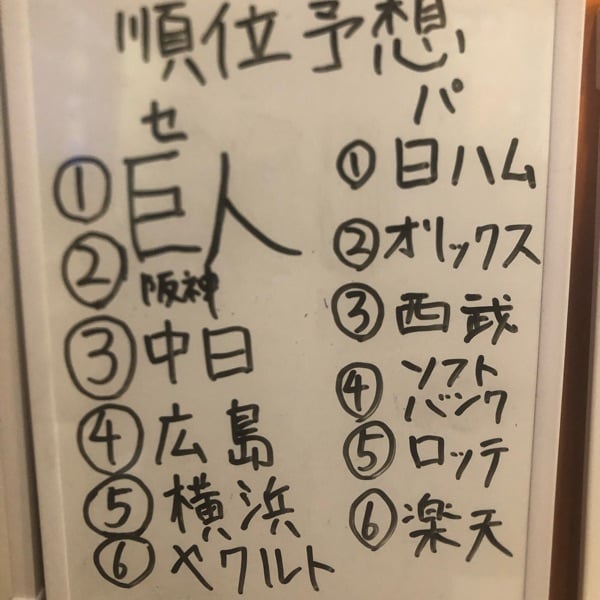 順位予想
セ
①巨人
②阪神
③中日
④広島
⑤横浜
⑥ヤクルト
パ
①日ハム
②オリックス
③西武
④ソフト
バンク
⑤ロッテ
⑥楽天